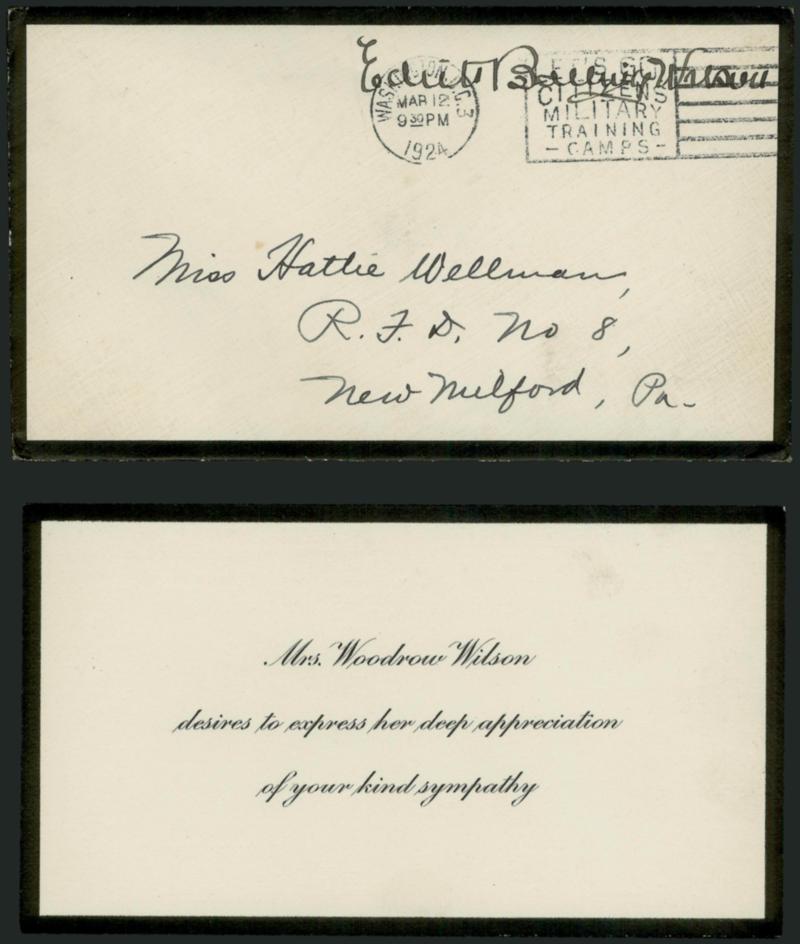 Edith Bolling Wilson
WASHINGTON, D.C. 3
MAR 12
9 30 PM
1924
LET'S GO
CITIZENS
MILITARY
TRAINING
- CAMPS -
Miss Hattie Wellman,
R. F. D. No 8,
New Milford, Pa-
Mrs. Woodrow Wilson
desires to express her deep appreciation
of your kind sympathy